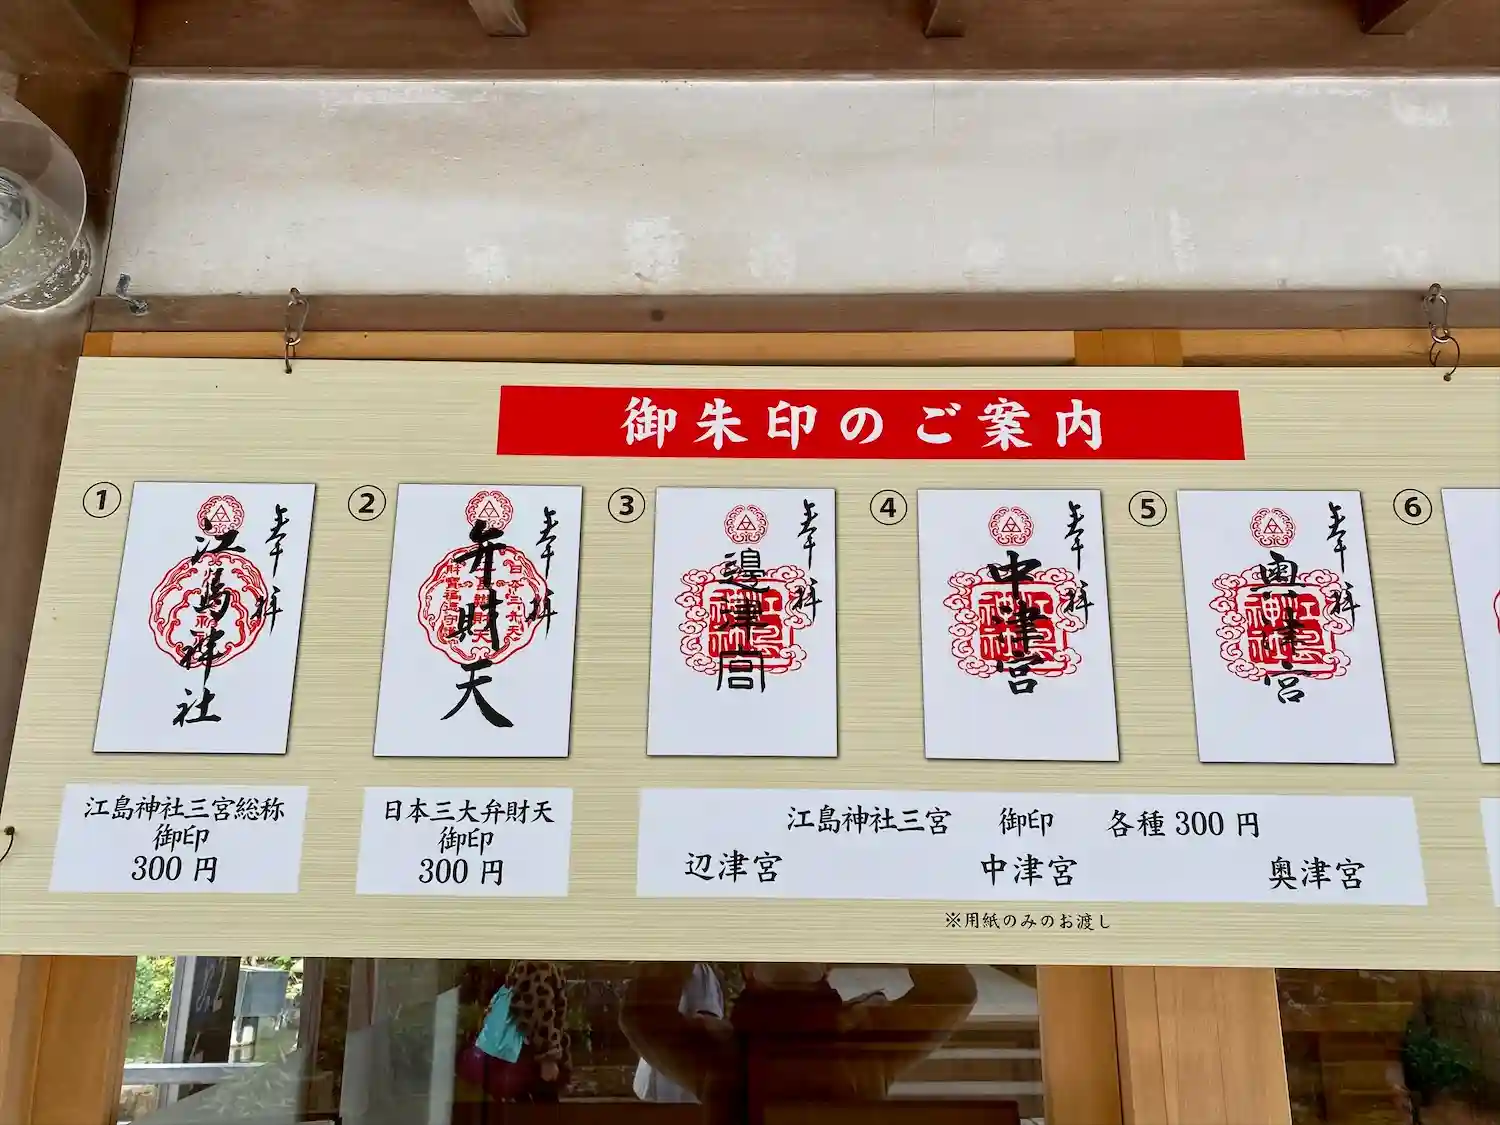 御朱印のご案内
①
奉拝
江島神社
②
奉拝
弁財天
③
奉拝
邊津宮
④
奉拝
中津宮
⑤
奉拝
奥津宮
⑥
江島神社三宮総称
御印
300 円
日本三大弁財天
御印
300 円
江島神社三宮 御印 各種 300 円
辺津宮 中津宮 奥津宮
※用紙のみのお渡し